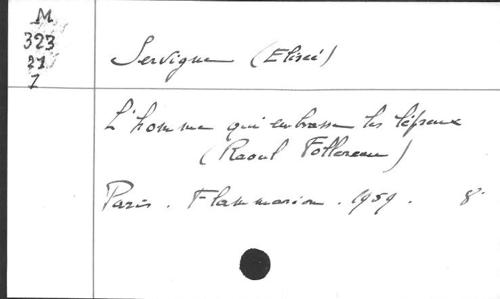 M
323
21
1
Servigne (Elisée)
L'homme qui embrasse les lépreux
(Raoul Follereau)
Paris. Flammarion. 1959. 8°